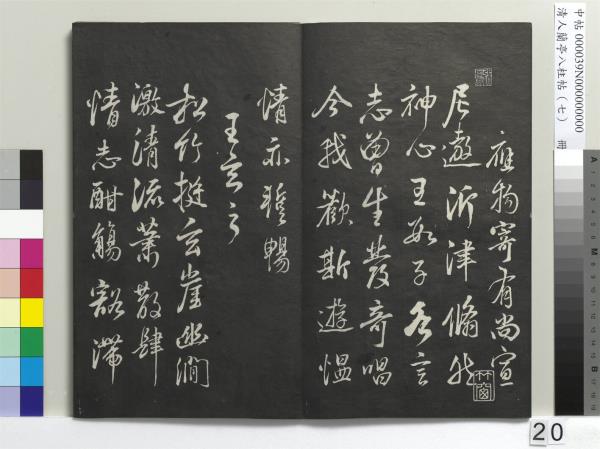 中帖 000039N000000000
清人蘭亭八柱帖（七） 冊
應物寄有尚宣
尼遨沂津翛然
神心王數子各言
志曾生發奇唱
今我歡斯遊慍
情亦暢
王玄之
松竹挺玄崖幽澗
激清流蕭散肆
情志酣觴豁滯
20